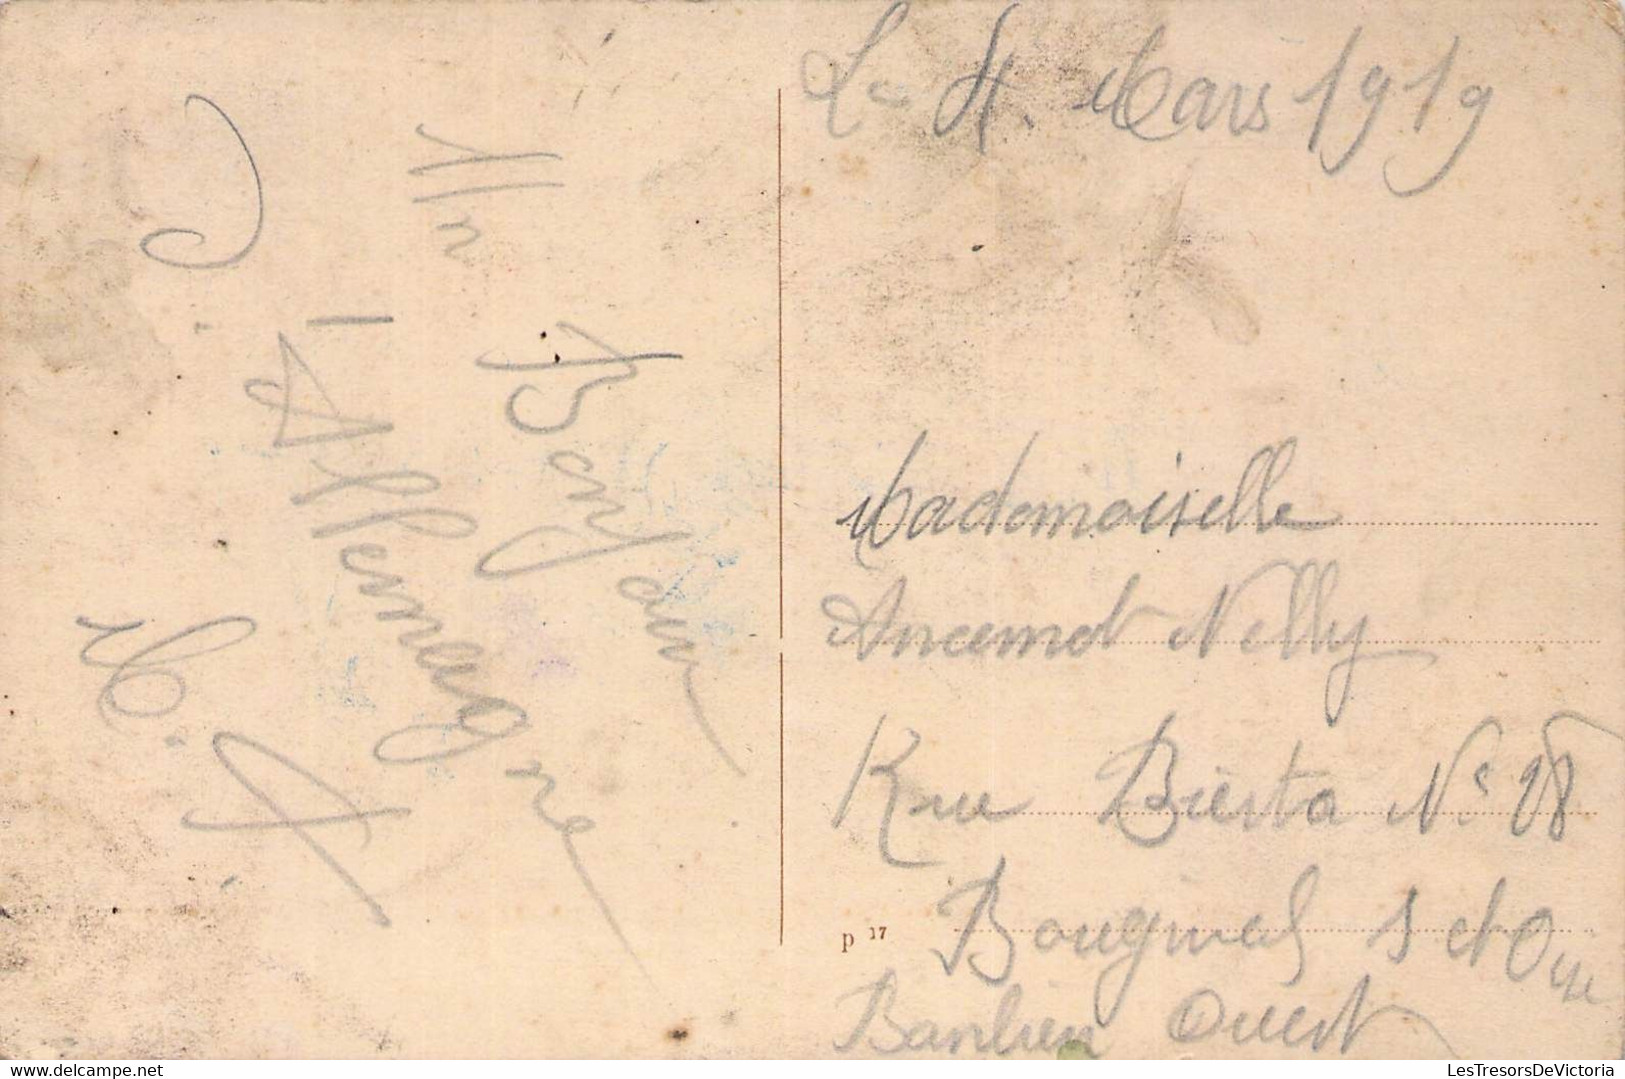 Le 4 Mars 1919
Un
Bonjour
d
l'Allemagne
M. A
Mademoiselle
Ancemot Nelly
Rue Biesta No 18
Bougival S et Oise
Banlieu Ouest
p 17
LesTresorsDeVictoria